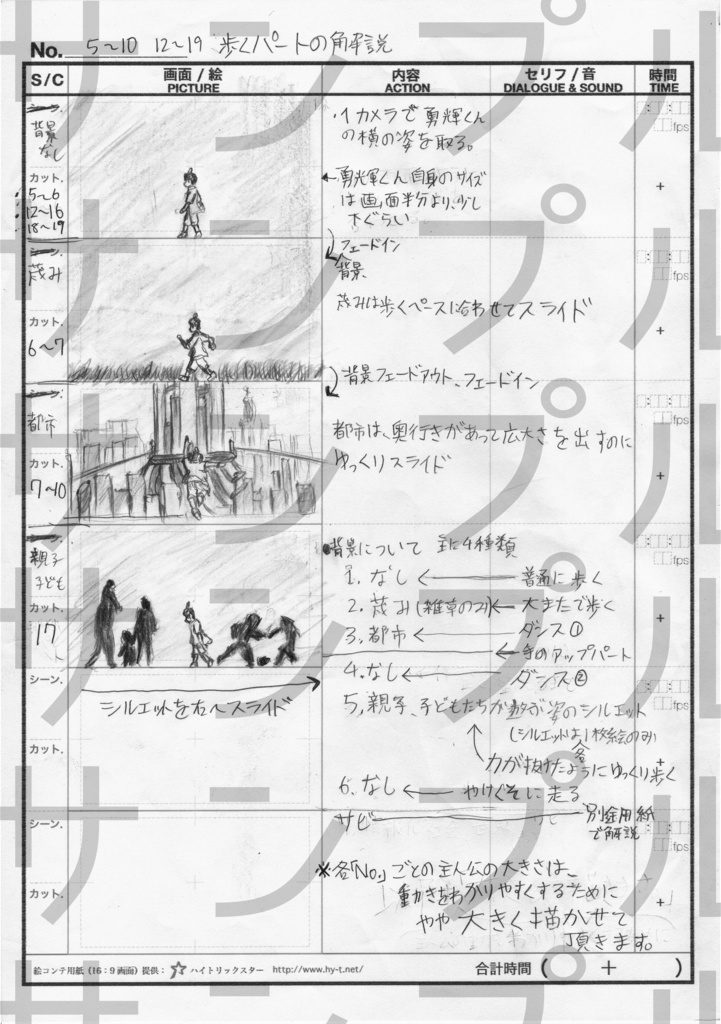 No. 5〜10 12〜19 歩くパートの解説
S/C
画面 / 絵
PICTURE
内容
ACTION
セリフ / 音
DIALOGUE & SOUND
時間
TIME
シーン.
背景
なし
カット.
5〜6
12〜16
18〜19
・1カメラで勇輝くん
の横の姿を取る。
←勇輝くん自身のサイズ
は画面半分より、少し
下ぐらい
fps
+
フェードイン
シーン.
茂み
カット.
6〜7
背景
茂みは歩くペースに合わせてスライド
fps
+
背景フェードアウト、フェードイン
シーン.
都市
カット.
7〜10
都市は、奥行きがあって広大さを出すのに
ゆっくりスライド
fps
+
シーン.
親子
子ども
カット.
17
●背景について 主に4種類
1. なし ← 普通に歩く
2. 茂み(雑草のみ) ← 大またで歩く
3. 都市 ← ダンス①
← 手のアップパート
fps
+
4. なし ← ダンス②
シーン.
シルエットを右へスライド
5. 親子、子どもたちが遊ぶ姿のシルエット
(シルエットは各1枚絵のみ)
カット.
力が抜けたようにゆっくり歩く
6. なし ← やけくそに走る
fps
+
シーン.
サビ 別途用紙
で解説
カット.
※各「No.」ごとの主人公の大きさは、
動きをわかりやすくするために
やや大きく描かせて
頂きます。
fps
+
絵コンテ用紙（16：9 画面）提供： ハイトリックスター http://www.hy-t.net/
合計時間 ( + )
サンプル
サンプル
サンプル
サンプル